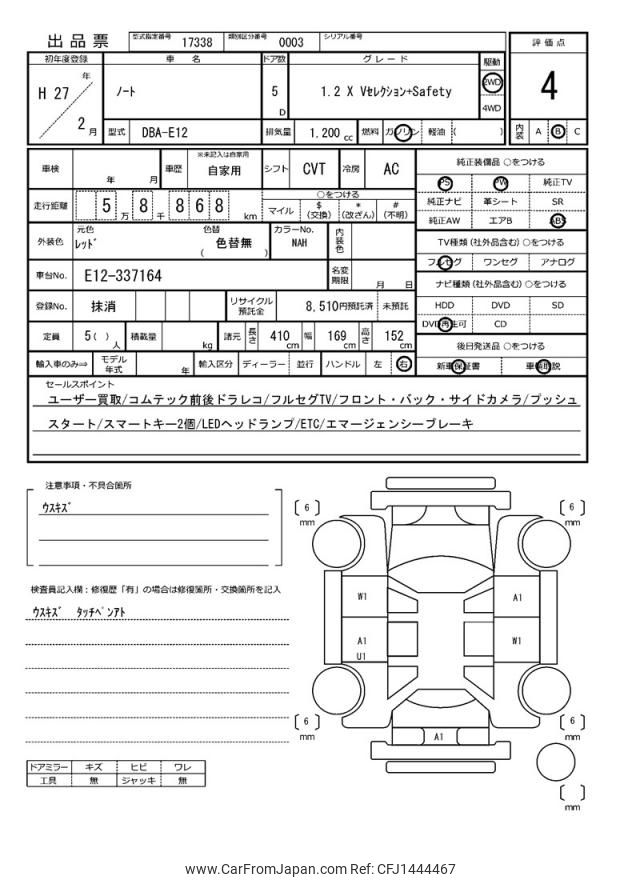 出品票 型式指定番号 17338 類別区分番号 0003 シリアル番号
評価点
4
内装 A B C
初年度登録 車名 ドア数 グレード 駆動
H 27 年 2 月 ノート 5 D 1.2 X Vセレクション+Safety 2WD 4WD
型式 DBA-E12 排気量 1.200 cc 燃料 ガソリン 軽油 ( )
車検 年 月 車歴 ※未記入は自家用 自家用 シフト CVT 冷房 AC
走行距離 5 万 8 千 8 6 8 km ○をつける
マイル $(交換) *(改ざん) #(不明)
外装色 元色 レッド 色替 ( 色替無 ) カラーNo. NAH 内装色
車台No. E12-337164 名変期限 月 日
登録No. 抹消 リサイクル預託金 8,510円預託済 未預託
定員 5( )人 積載量 kg 諸元 長さ 410 cm 幅 169 cm 高さ 152 cm
輸入車のみ⇒ モデル年式 年 輸入区分 ディーラー 並行 ハンドル 左 右
純正装備品 ○をつける
PS PW 純正TV
純正ナビ 革シート SR
純正AW エアB ABS
TV種類 (社外品含む) ○をつける
フルセグ ワンセグ アナログ
ナビ種類 (社外品含む) ○をつける
HDD DVD SD
DVD再生可 CD
後日発送品 ○をつける
新車保証書 車輌取説
セールスポイント
ユーザー買取/コムテック前後ドラレコ/フルセグTV/フロント・バック・サイドカメラ/プッシュ
スタート/スマートキー2個/LEDヘッドランプ/ETC/エマージェンシーブレーキ
注意事項・不具合箇所
ウスキズ
検査員記入欄：修復歴「有」の場合は修復箇所・交換箇所を記入
ウスキズ タッチペンアト
ドアミラー キズ ヒビ ワレ
工具 無 ジャッキ 無
〔 6 〕 mm
〔 6 〕 mm
W1
A1
A1
U1
W1
〔 6 〕 mm
〔 6 〕 mm
A1
〔 〕 mm
www.CarFromJapan.com Ref: CFJ1444467